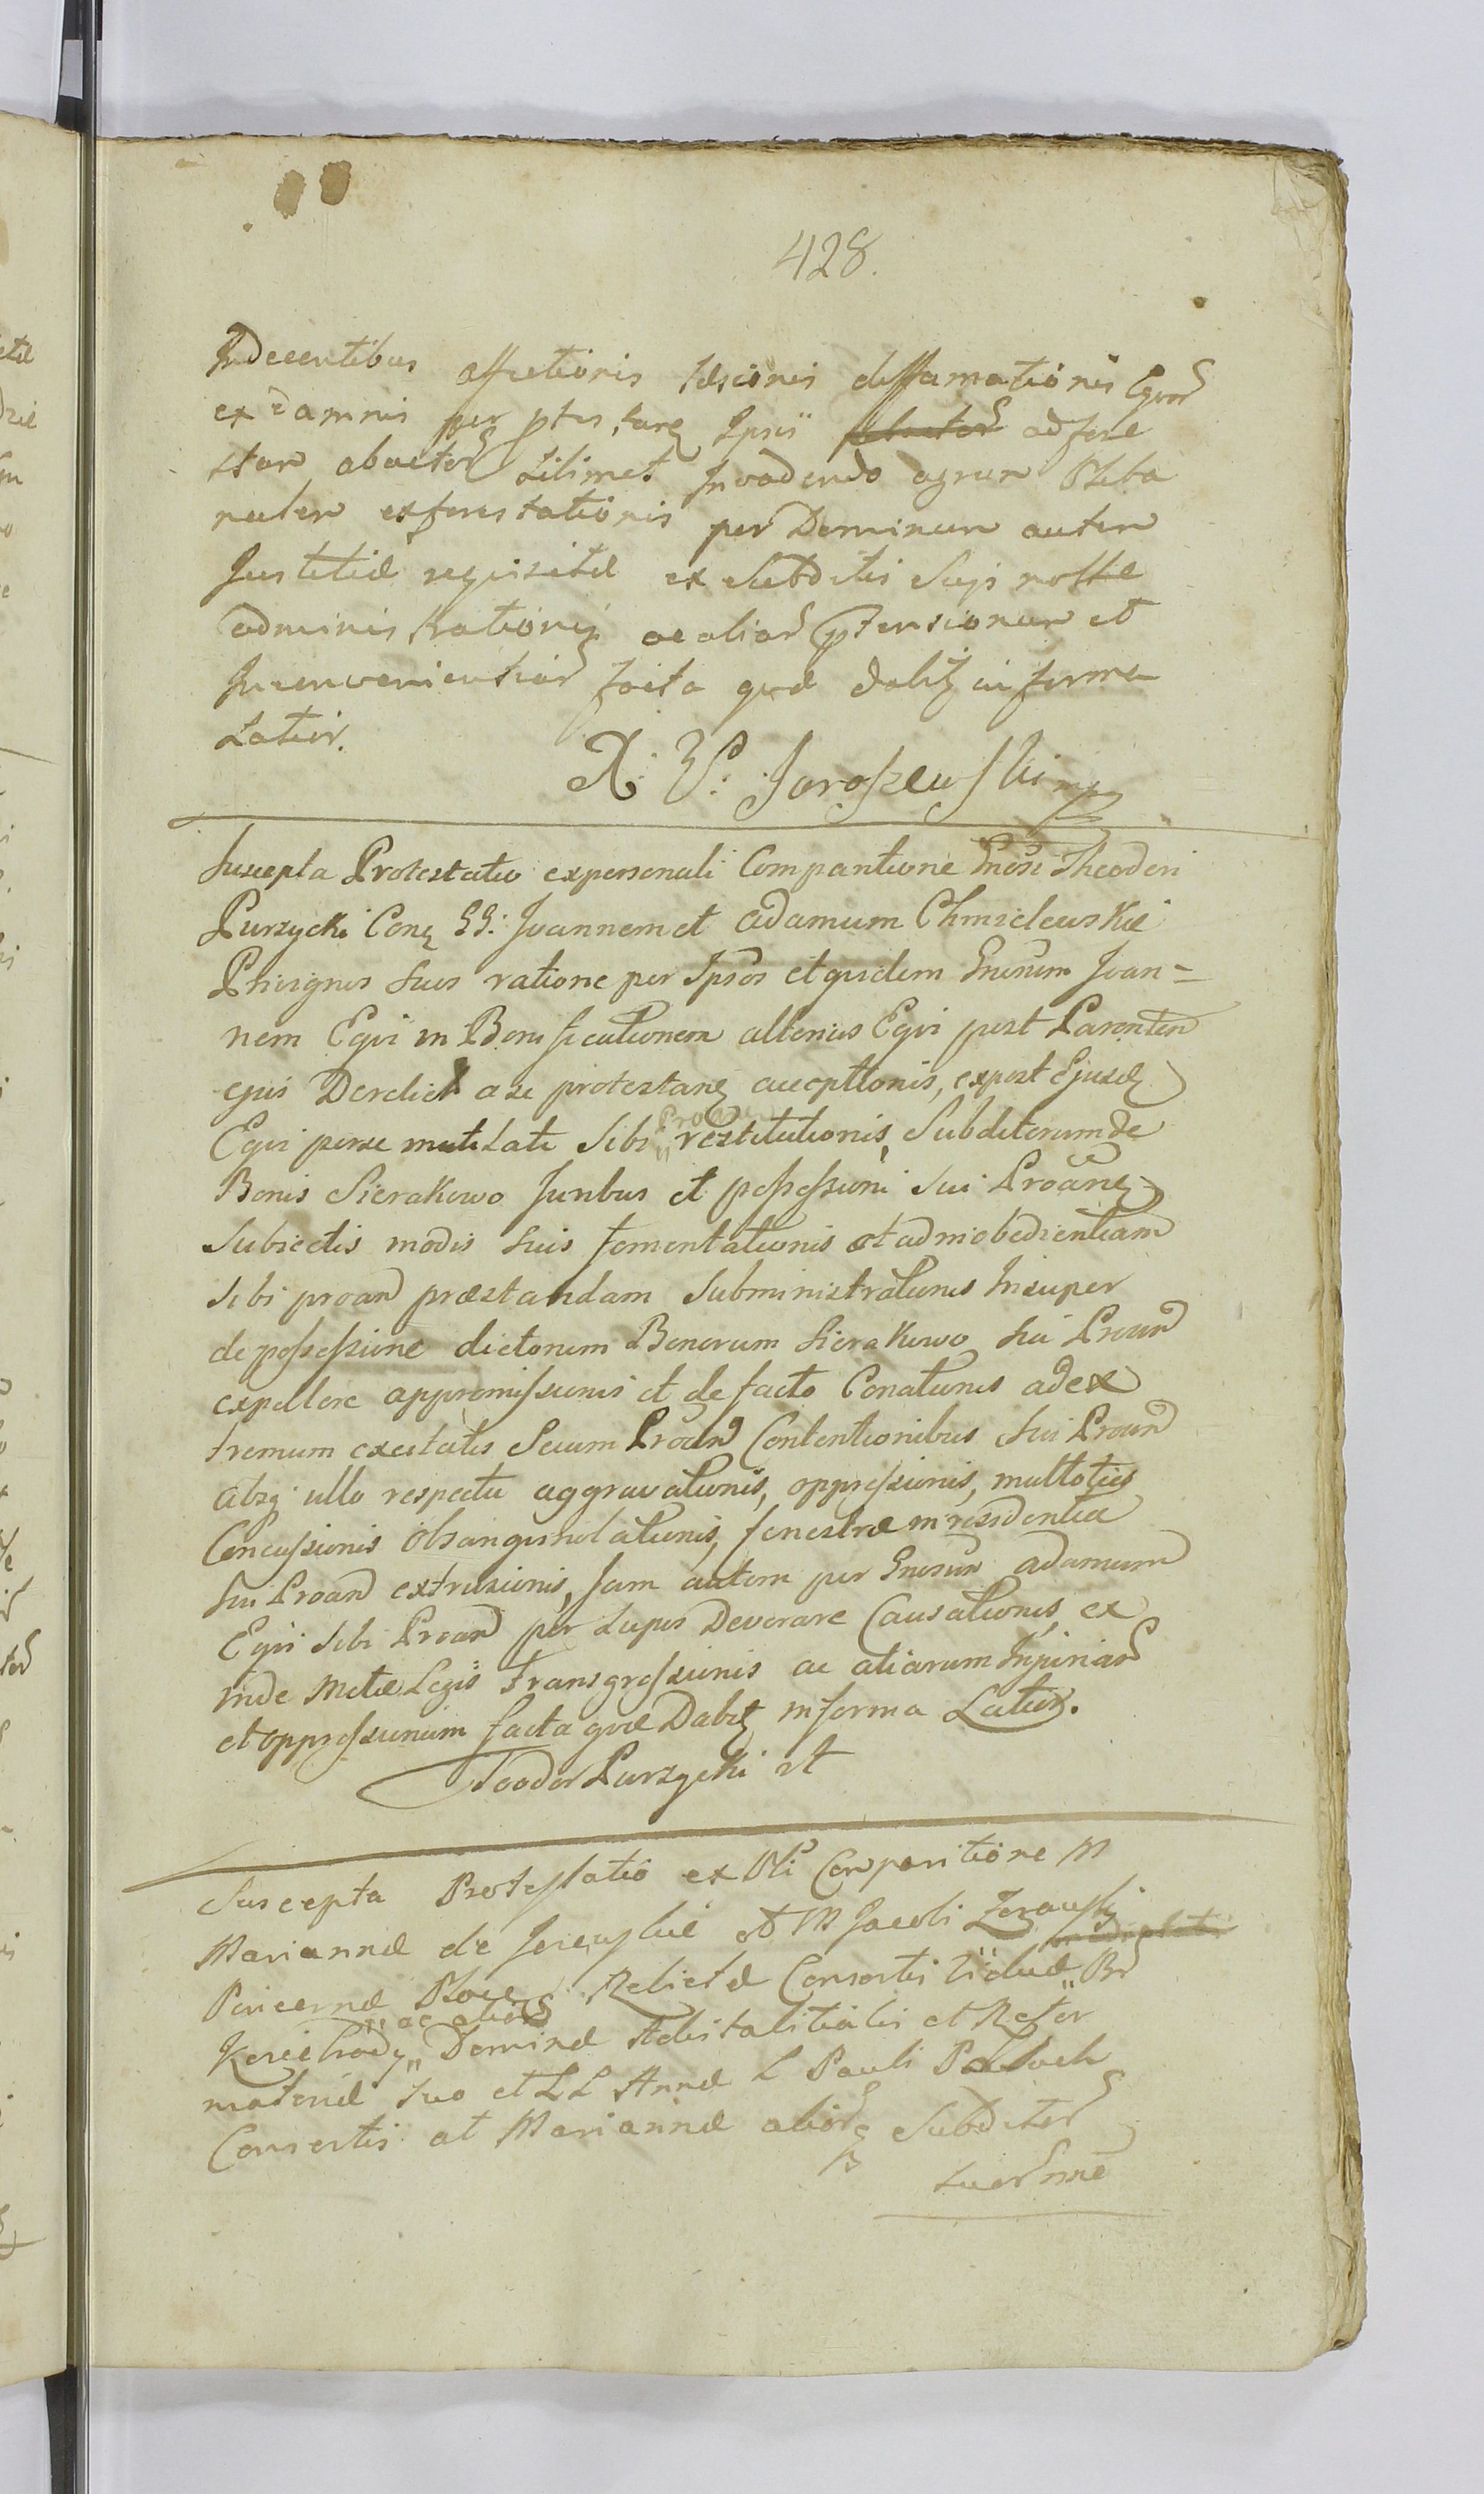 428.
Indecentibus affectionis læsionis diffamationis Eqvor
ex damnis per ptes, Ipsii adfore
star abactor sibimet Invadendo agrum Pleba
nalem exforestationis per Dominum autem
Justitiæ reqvisitæ ex Subditis Suis nostræ
administrationis ac alior ptensionum et
Inconvenientiar facta qvæ dabit in forma
Latior.
X. W. Jaroszewski mp
Suscepta Protestatio expersonali Comparitione Gnosi Theodori
Purzycki Conq GG: Joannem et Adamum Chmielewskie
Privignos Suos ratione per Ipsos et qvidem Gnosum Joan=
nem Eqvi in Bonificationem alterius Eqvi post Parentem
ejus Derelict a se protestanq acceptionis, expost Ejusdq
Eqvi per se mutilati Sibi restitutionis, Subditorum de
Proan
Bonis Sierakowo Juribus et possessioni Sui Proanq
Subiectis modis Suis fomentationis et ad inobedientiam
Sibi proan præstandam Subministrationis Insuper
de possessione dictorum Bonorum Sierakowo Sui Proan
expellere appromissionis et de facto Conationis ad ex
tremum excitatis Secum Proan Contentionibus Sui Proan
absq ullo respectu aggravationis, oppressionis, multoties
Concussionis Obsangvinolationis, fenestræ in residentia
Sui Proan extrusionis, Jam autem per Gnosum Adamum
Eqvi Sibi Proan per Lupos Devorare Causationis, ex
inde Metæ Legis transgressionis ac aliarum Injuriar
et oppressionum facta qvæ Dabit in forma Latiori.
Teodor Purzycki
Suscepta Protestatio ex Obli Comparitione M
Mariannæ de et M Jacobi
Pincernæ Ploce Relictæ Consortis Viduæ
ac alior Dominæ Advitalitialis et Nator
materiæ suo et LL Annæ L Pauli
Consortis at Mariannæ alior Subditor
suor nne